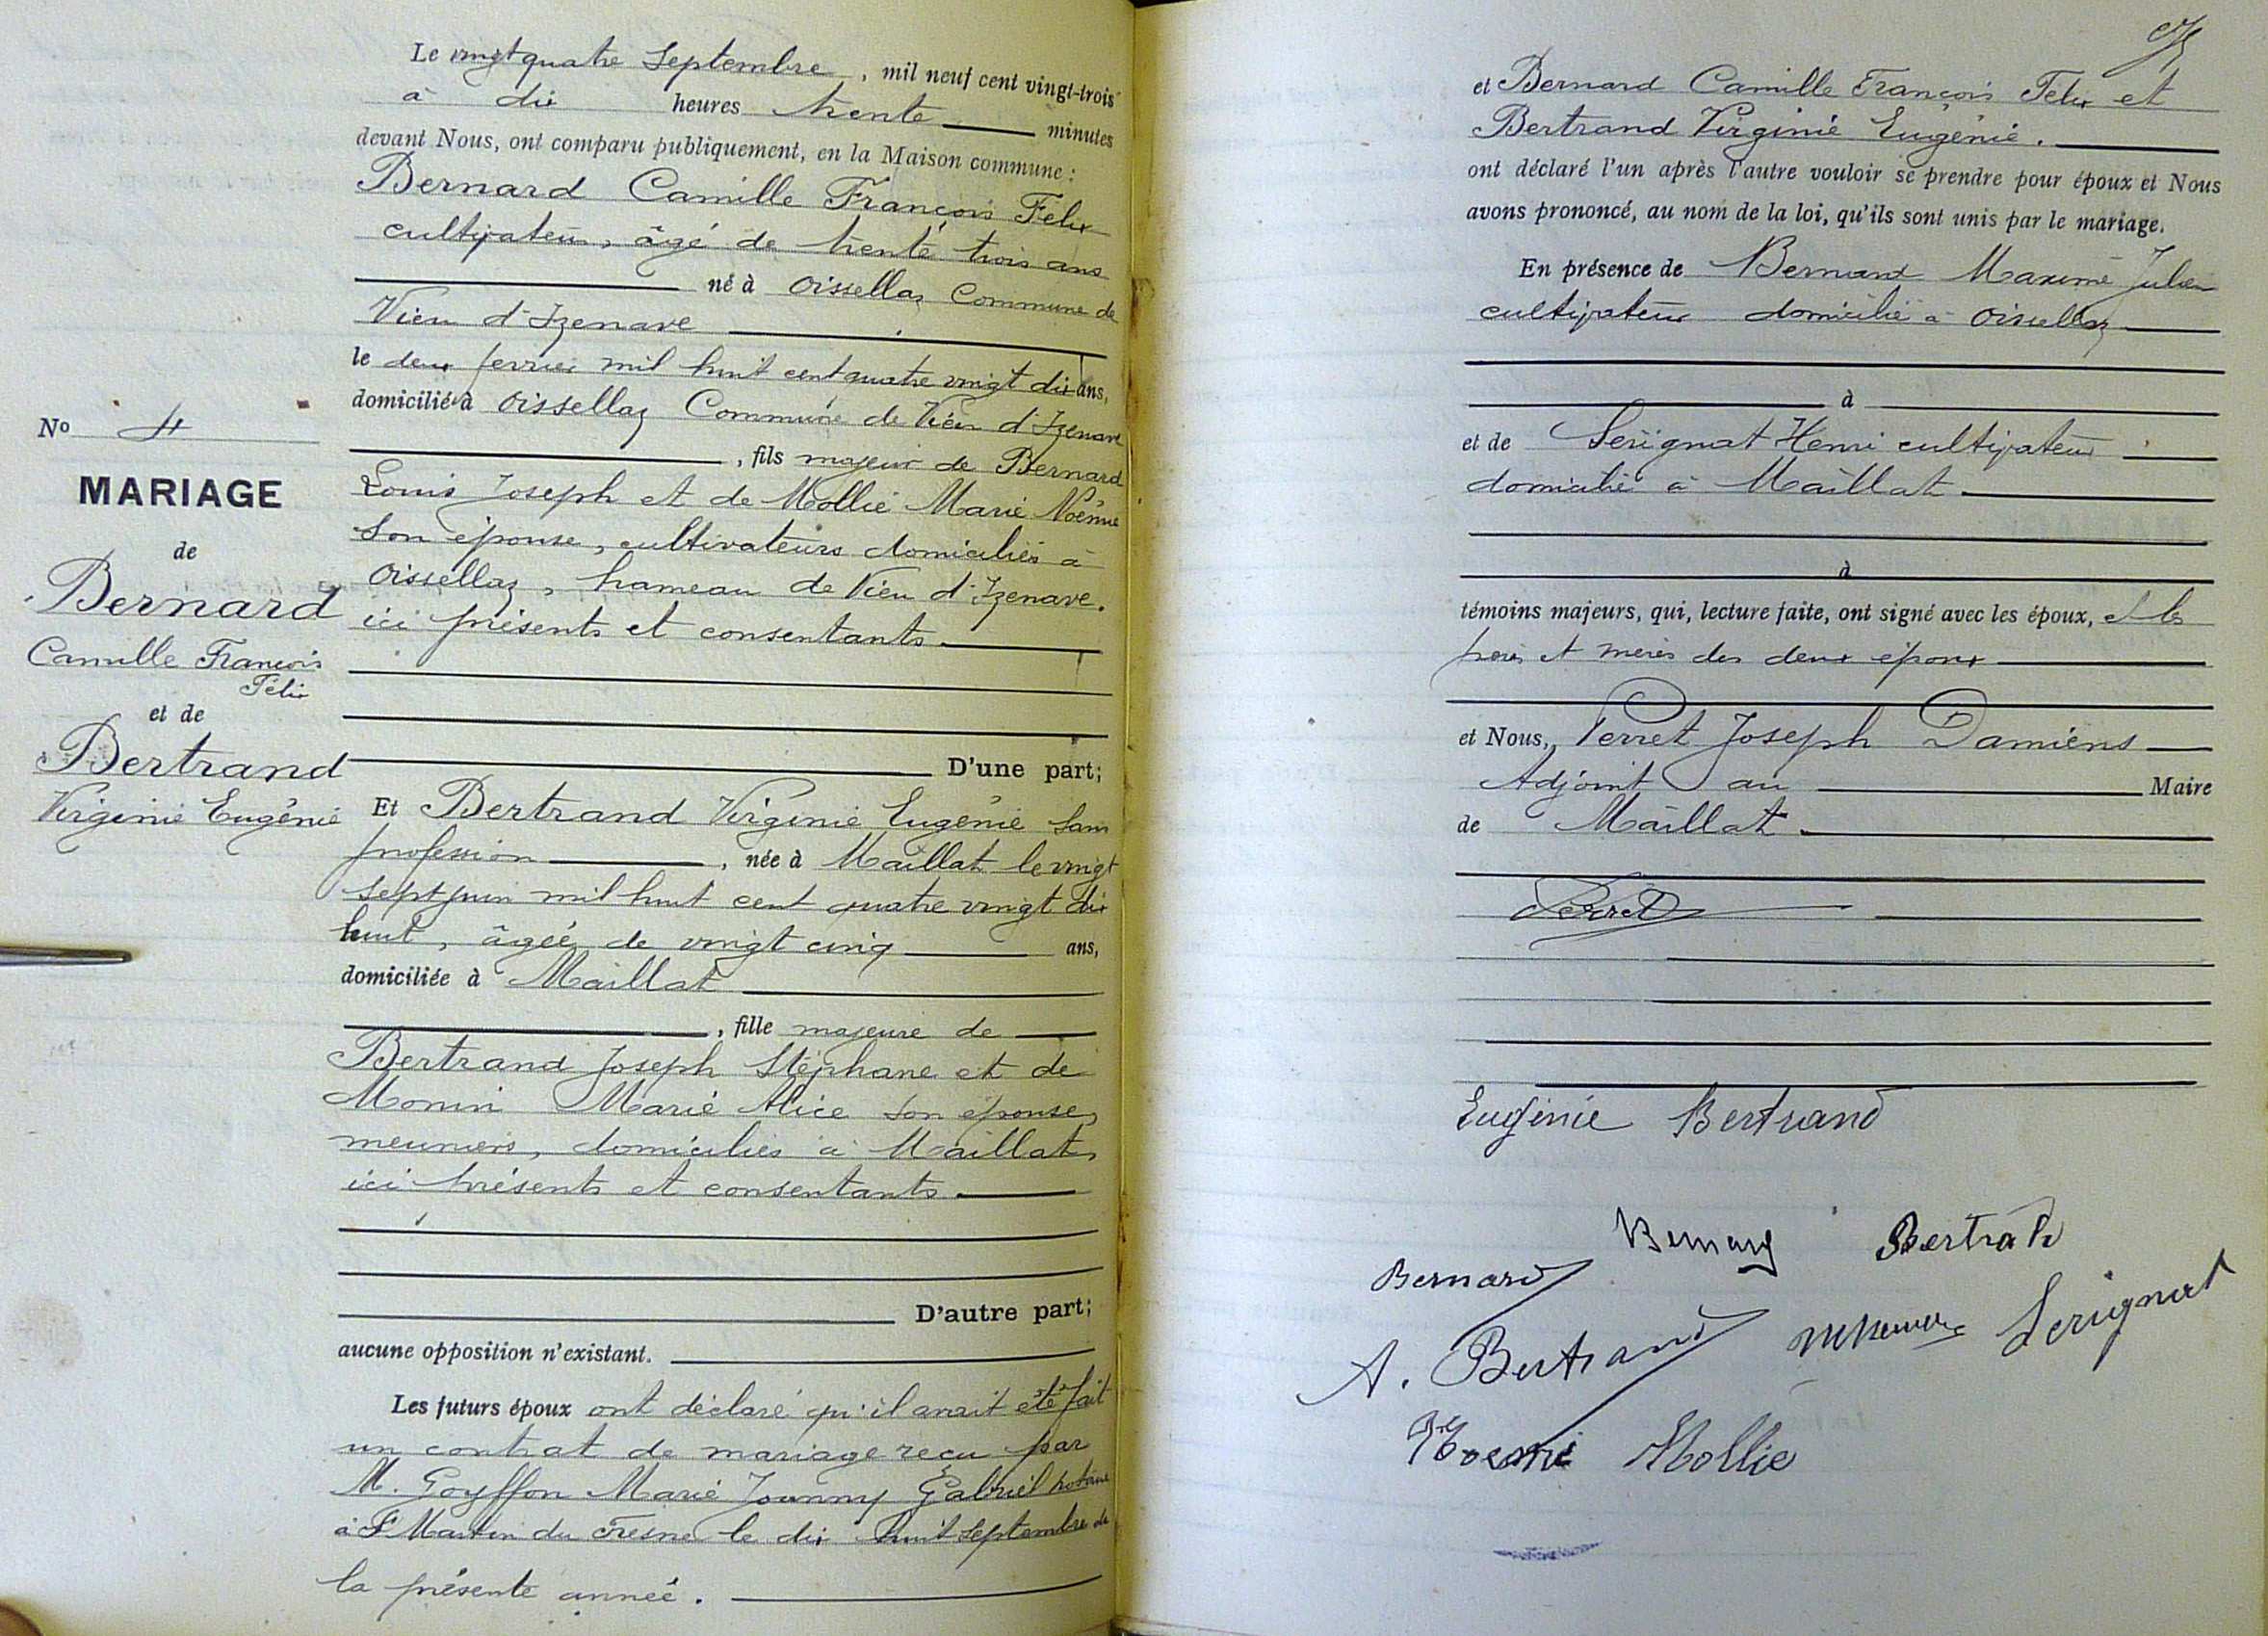 Le vingt quatre Septembre, mil neuf cent vingt-trois
à dix heures trente minutes
devant Nous, ont comparu publiquement, en la Maison commune :
Bernard Camille François Felix
cultivateur, âgé de trente trois ans
né à Oissellaz Commune de
Vieu d'Izenave
le deux fevrier mil huit cent quatre vingt dix ans,
domicilié à Oissellaz Commune de Vieu d'Izenave
, fils majeur de Bernard
Louis Joseph et de Mollie Marie Noémie
son épouse, cultivateurs domiciliés à
Oissellaz, hameau de Vieu d'Izenave.
ici présents et consentants
D'une part;
No 4
MARIAGE
de
Bernard
Camille François
Félix
et de
Bertrand
Virginie Eugénie
Et Bertrand Virginie Eugénie sans
profession, née à Maillat le vingt
sept juin mil huit cent quatre vingt dix
huit, âgée de vingt cinq ans,
domiciliée à Maillat
, fille majeure de
Bertrand Joseph Stéphane et de
Monin Marie Alice son épouse,
meuniers, domiciliés à Maillat,
ici présents et consentants.
D'autre part;
aucune opposition n'existant.
Les futurs époux ont déclaré qu'il avait été fait
un contrat de mariage reçu par
M. Goyffon Marie Gabriel notaire
à St Martin du Fresne le dix huit septembre de
la présente année.
et Bernard Camille François Felix et
Bertrand Virginie Eugénie.
ont déclaré l'un après l'autre vouloir se prendre pour époux et Nous
avons prononcé, au nom de la loi, qu'ils sont unis par le mariage.
En présence de Bernard Maxime Julien
cultivateur domicilié à Oissellaz
à
et de Serignat Henri cultivateur
domicilié à Maillat.
à
témoins majeurs, qui, lecture faite, ont signé avec les époux, et les
peres et meres des deux époux
et Nous, Perret Joseph Damiens
Adjoint au Maire
de Maillat.
Perret
Eugénie Bertrand
Bernard Bertrand
Bernard
A. Bertrand Serignat
Noemie Mollie